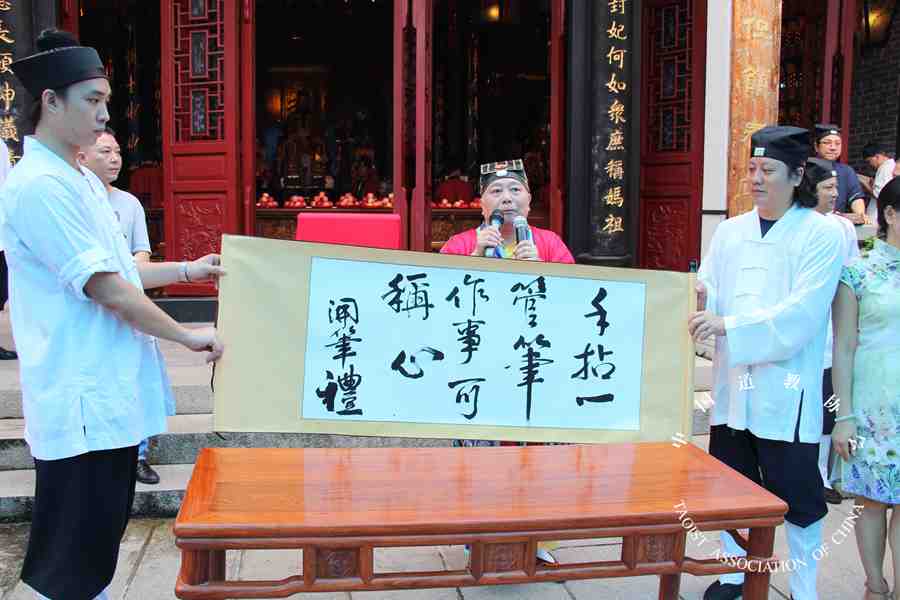 手拈一
管筆
作事可
稱心
開筆禮
封妃何如衆庶稱媽祖
但願
中国道教协会
TAOIST ASSOCIATION OF CHINA